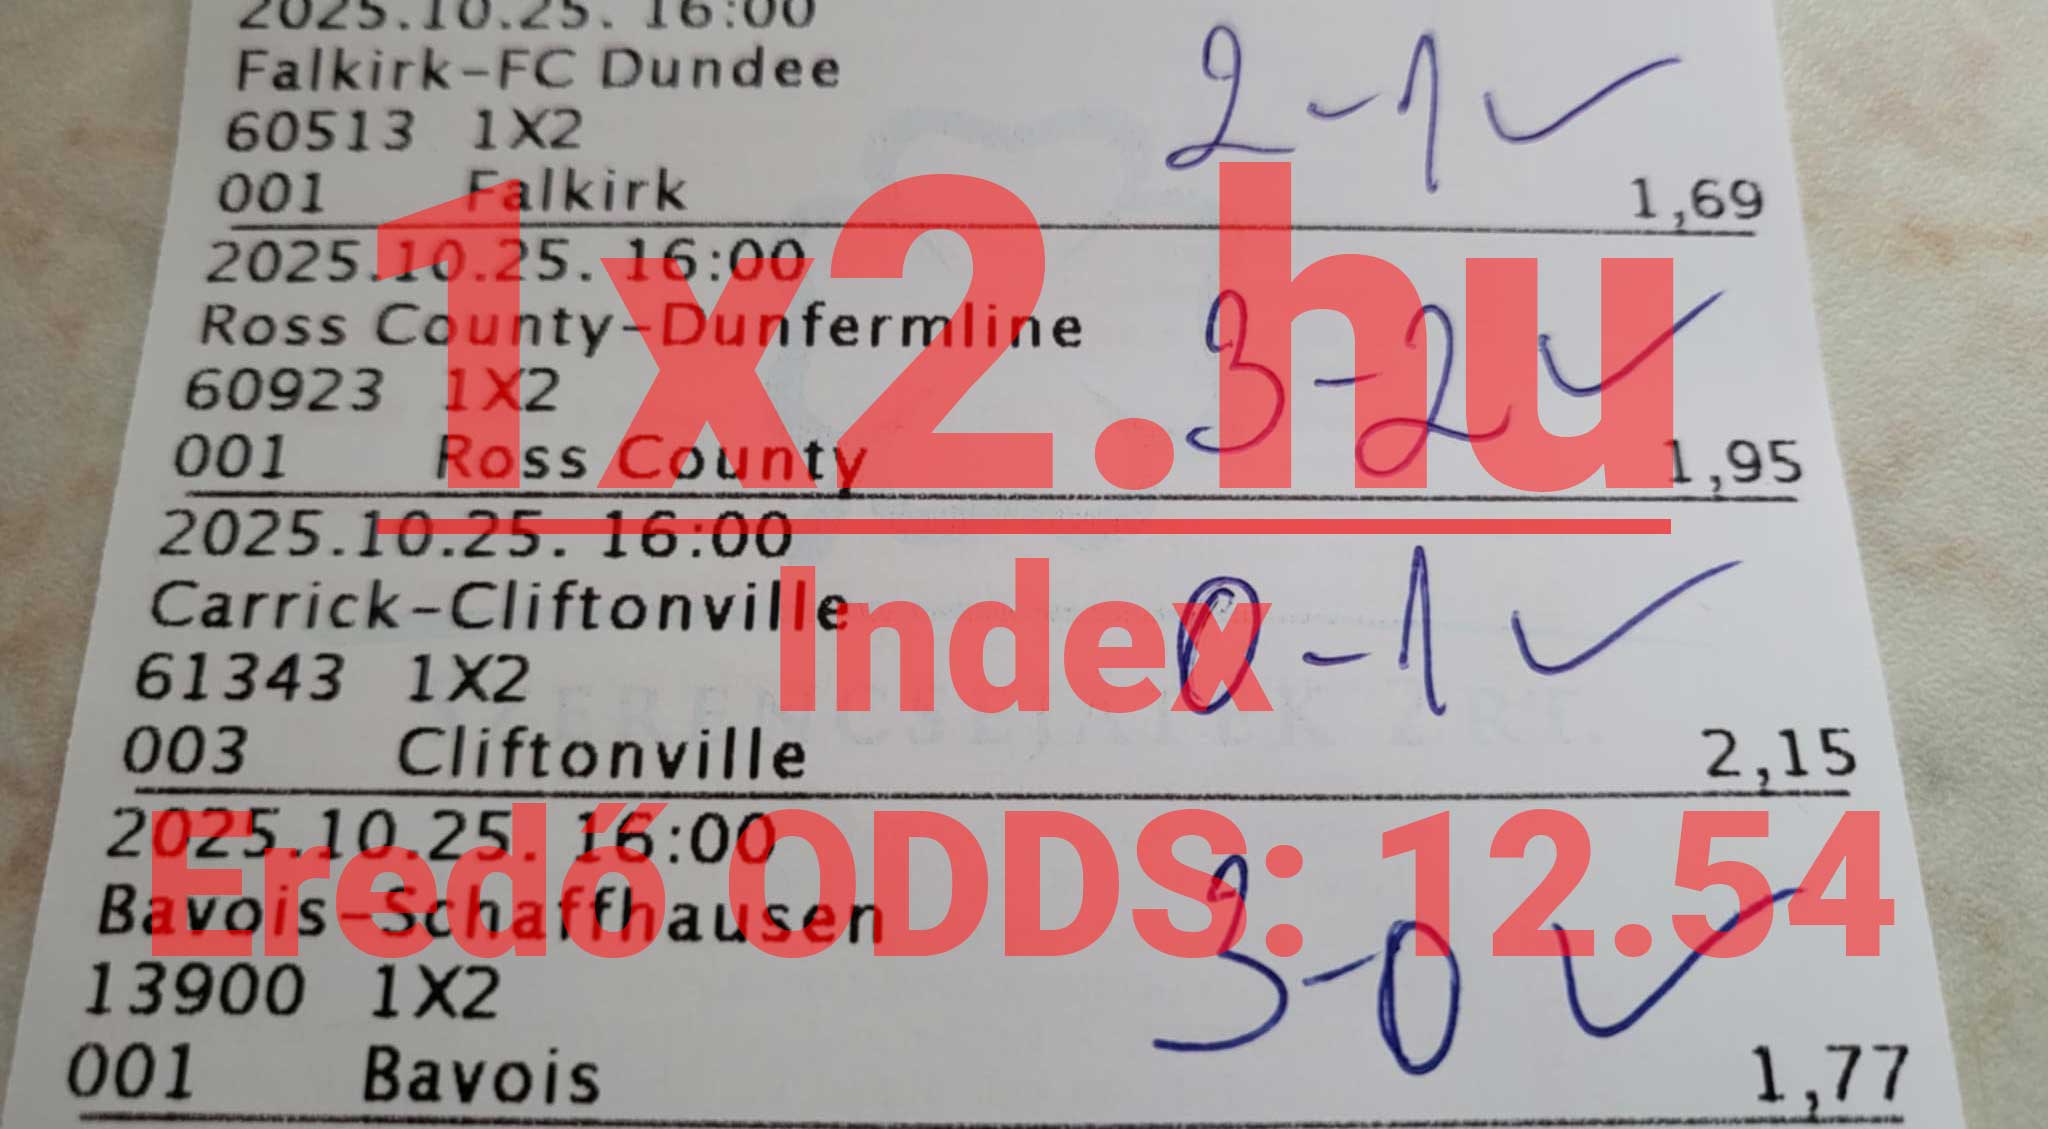 2025.10.25. 16:00
Falkirk-FC Dundee
60513 1X2
001 Falkirk 1,69
2-1 ✓
2025.10.25. 16:00
Ross County-Dunfermline
60923 1X2
001 Ross County 1,95
3-2 ✓
2025.10.25. 16:00
Carrick-Cliftonville
61343 1X2
003 Cliftonville 2,15
0-1 ✓
2025.10.25. 16:00
Bavois-Schaffhausen
13900 1X2
001 Bavois 1,77
3-0 ✓
SZERENCSEJÁTÉK ZRT.
1x2.hu
Index
Eredő ODDS: 12.54